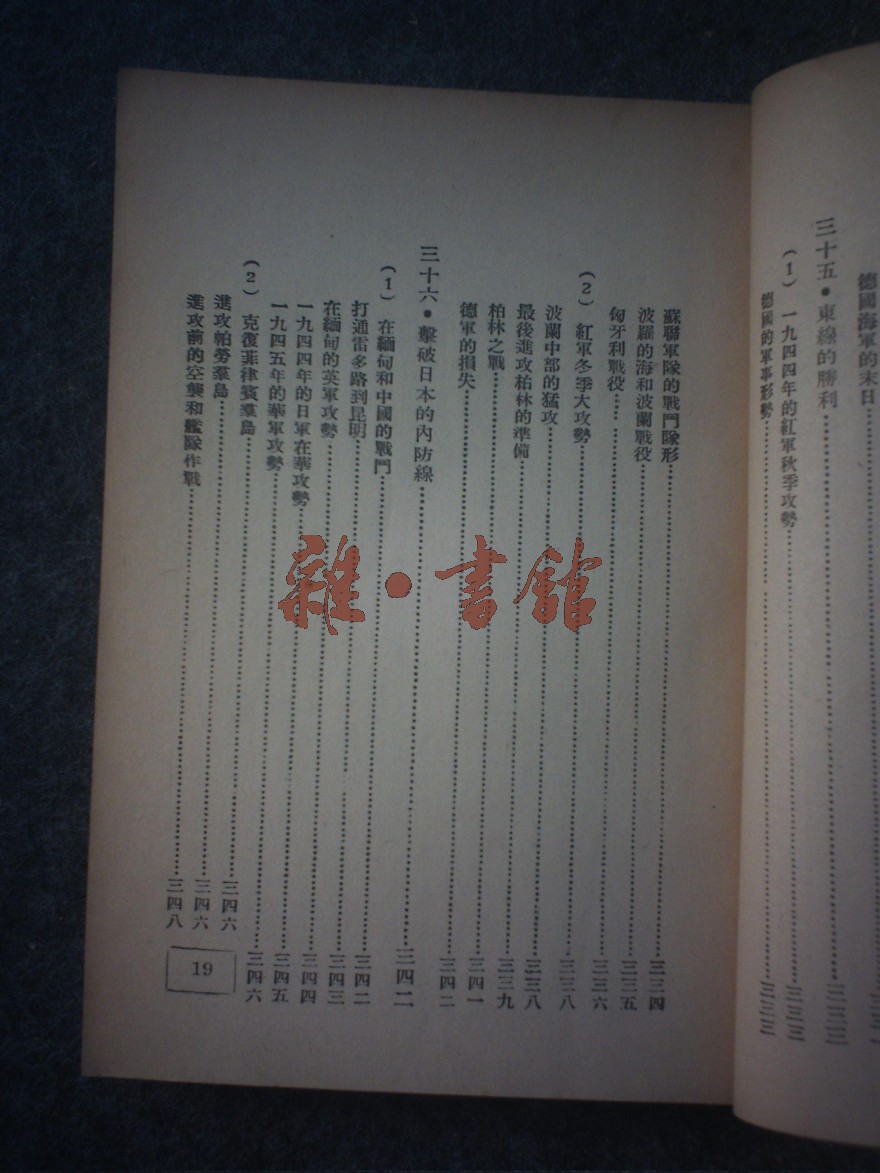 德國海軍的末日
三十五•東線的勝利……三三三
(1) 一九四四年的紅軍秋季攻勢……三三三
德國的軍事形勢……三三三
蘇聯軍隊的戰鬥隊形……三三四
波羅的海和波蘭戰役……三三五
匈牙利戰役……三三六
(2) 紅軍冬季大攻勢……三三八
波蘭中部的猛攻……三三八
最後進攻柏林的準備……三三九
柏林之戰……三四一
德軍的損失……三四二
三十六•擊破日本的內防線……三四二
(1) 在緬甸和中國的戰鬥……三四二
打通雷多路到昆明……三四三
在緬甸的英軍攻勢……三四四
一九四四年的日軍在華攻勢……三四五
一九四五年的華軍攻勢……三四六
(2) 克復菲律賓羣島……三四六
進攻帕勞羣島……三四六
進攻前的空襲和艦隊作戰……三四八
19
雜•書館